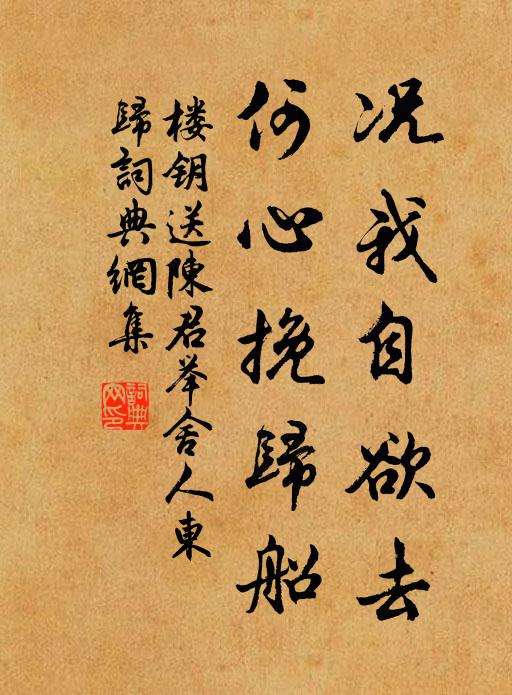 况我自欲去
何心挽歸船
楼钥送陳君举舍人東
歸詞典網集
詞典
网印